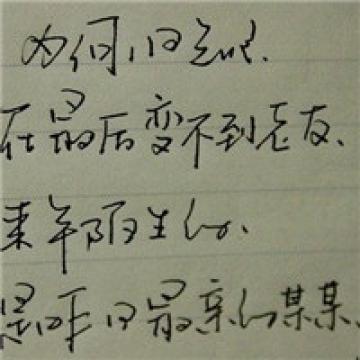 为何旧知己.
在最后变不到老友.
来年陌生的.
是昨日最亲的某某.